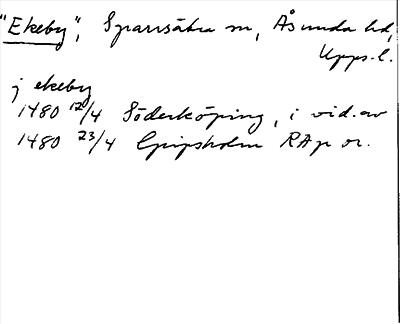 "Ekeby", Sparrsätra sn, Åsunda hd,
Upps. l.
j ekeby
1480 12/4 Söderköping, i vid. av
1480 23/4 Gripsholm RAp or.